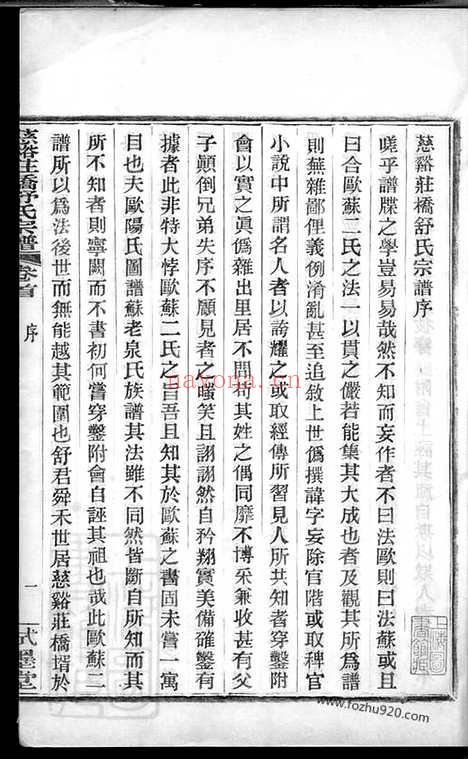 慈谿莊橋舒氏宗譜序
嗟乎譜牒之學豈易易哉然不知而妄作者不曰法歐則曰法蘇或且
曰合歐蘇二氏之法一以貫之儼若能集其大成也者及觀其所為譜
則蕪雜鄙俚義例淆亂甚至追敘上世偽撰諱字妄除官階或取稗官
小說中所謂名人者以誇耀之或取經傳所習見人所共知者穿鑿附
會以實之眞偽雜出里居不問苟其姓之偶同靡不博采兼收甚有父
子顛倒兄弟失序不顧見者之嗤笑且詡詡然自矜翔實美備確鑿有
據者此非特大悖歐蘇二氏之旨吾且知其於歐蘇之書固未嘗一寓
目也夫歐陽氏圖譜蘇老泉氏族譜其法雖不同然皆斷自所知其
所不知者則寧闕而不書初何嘗穿鑿附會自誣其祖也哉此歐蘇二
譜所以為法後世而無能越其範圍也舒君舜禾世居慈谿莊橋壻於
慈谿莊橋舒氏宗譜
卷首
序
一
式穀堂
nayona.cn
www.fozhu920.com